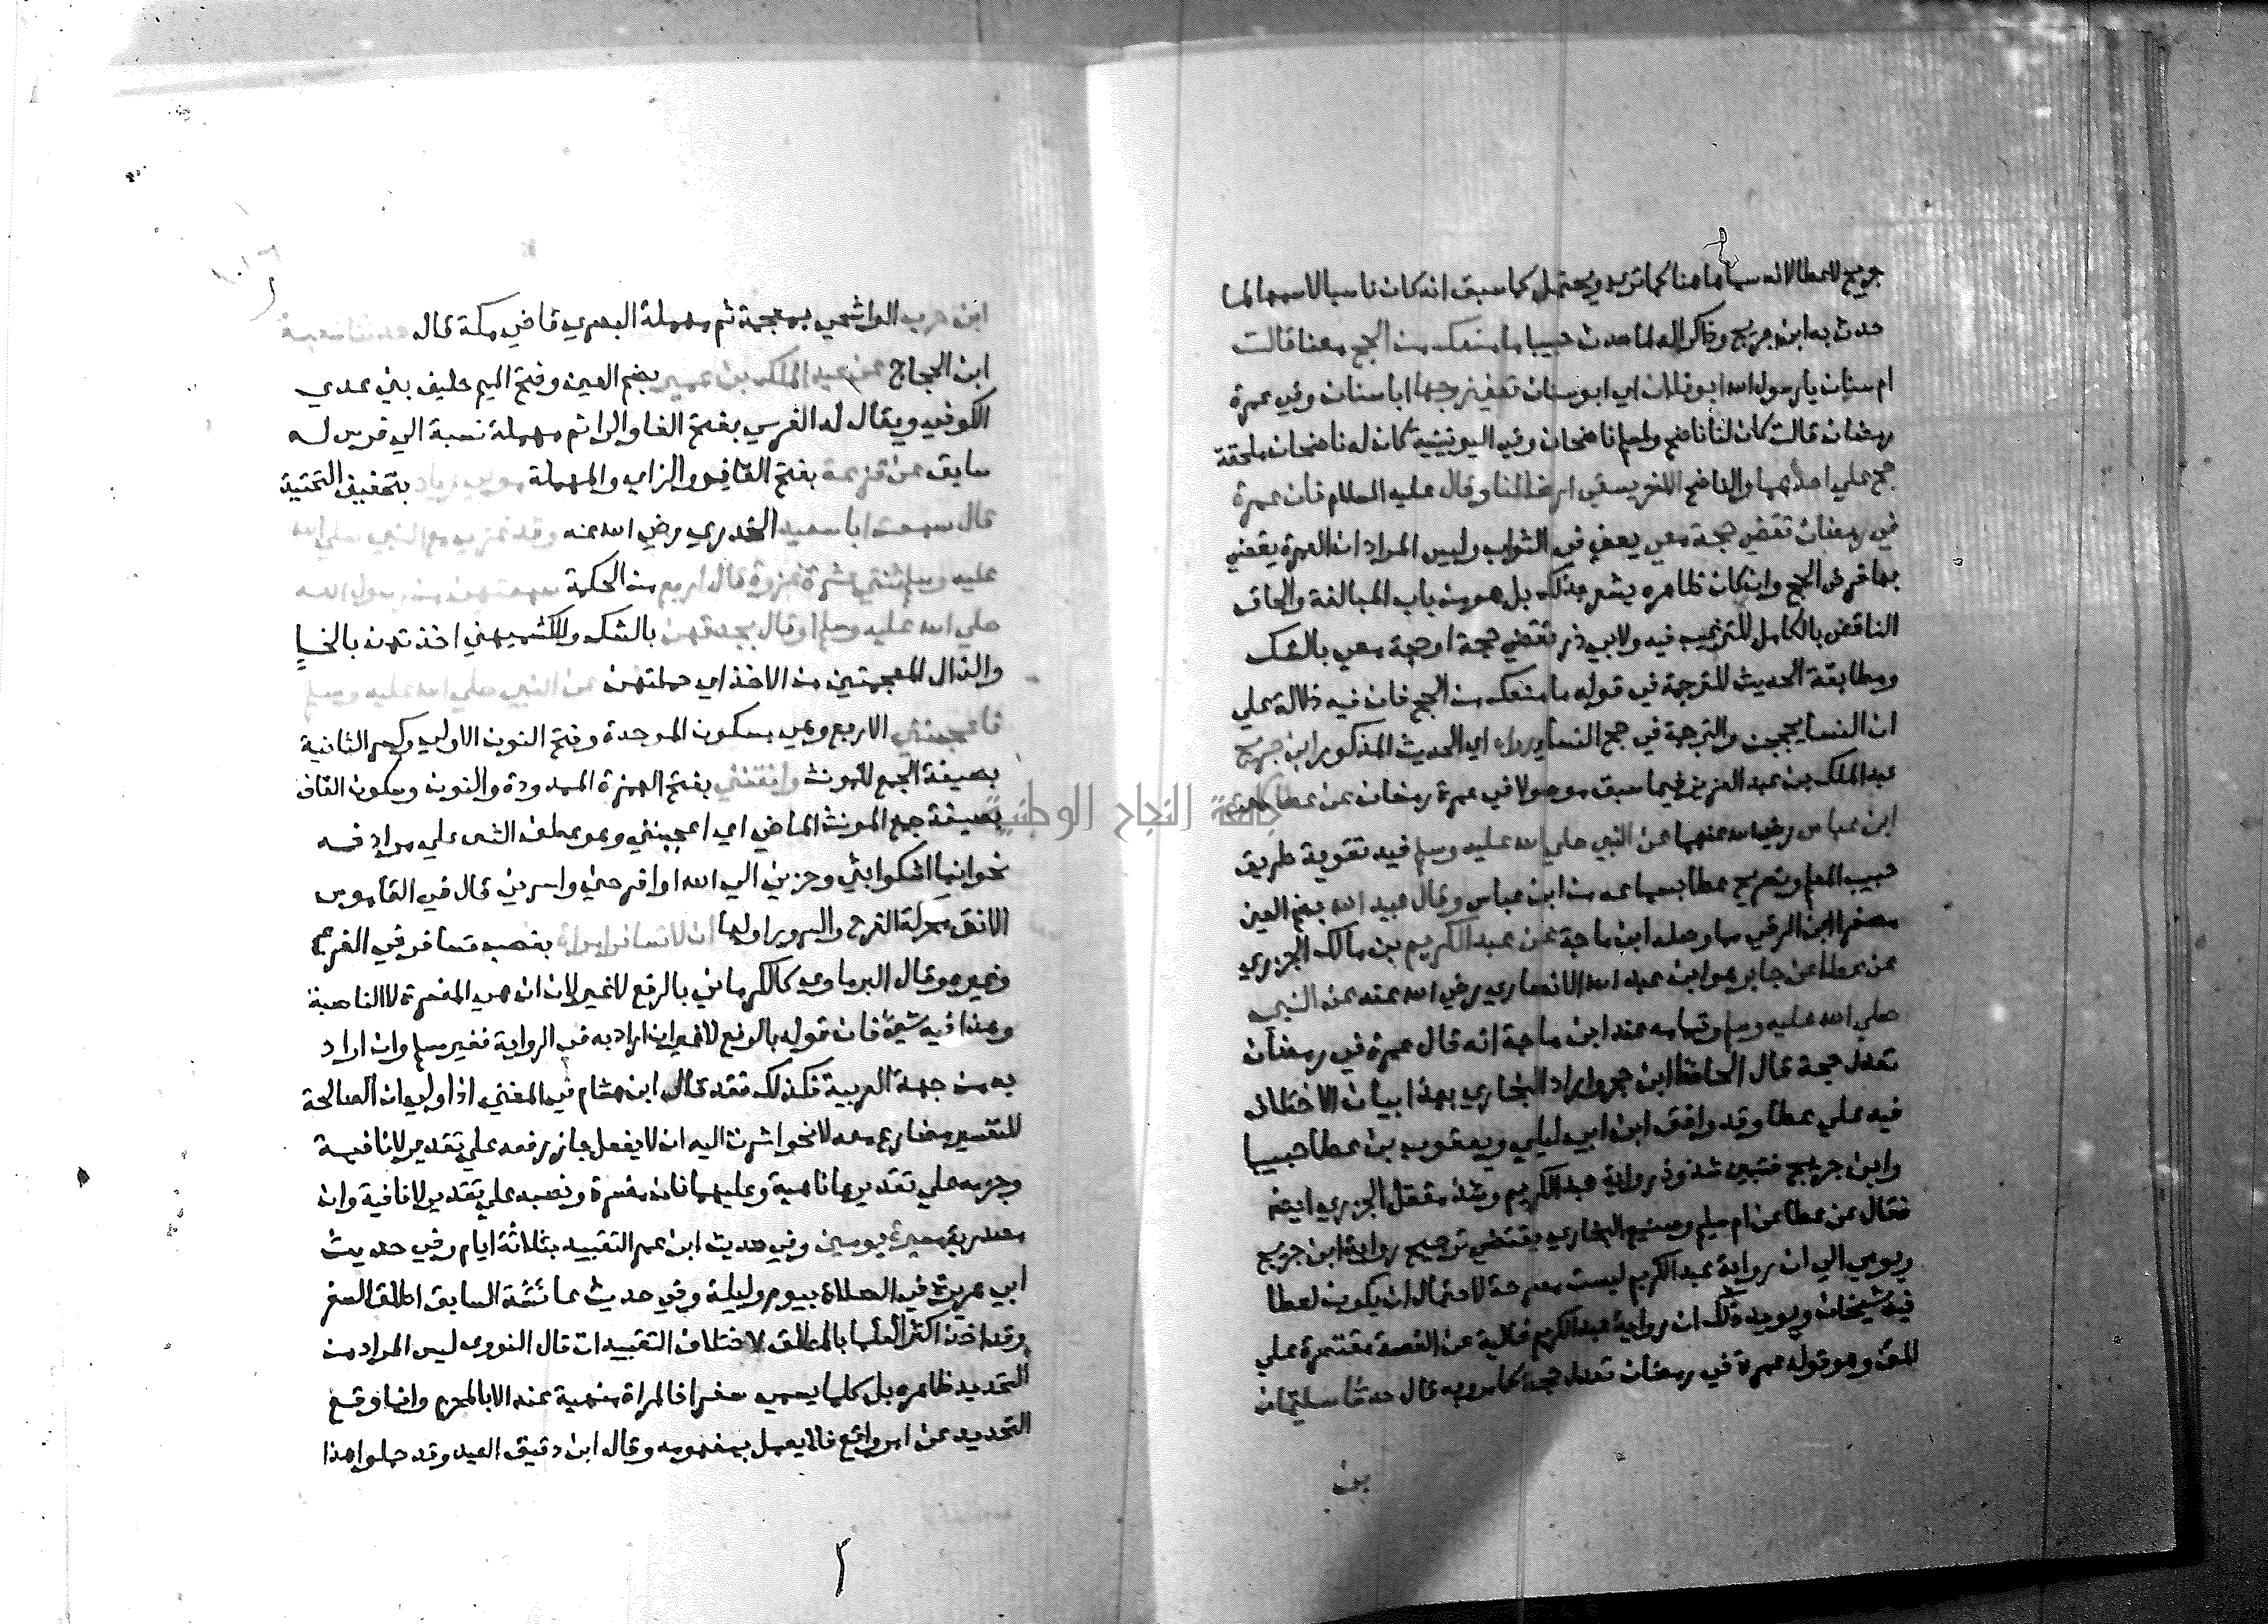 جريج لا عطا لانه سماها هنا كما ترى ويحتمل كما سبق انه كان ناسيا لاسمها لما
حدث به ابن جريج وذاكرا له لما حدث حبيبا ما منعك من الحج معنا قالت
ام سنان يا رسول الله ابو فلان اي ابو سنان تعني زوجها ابا سنان وفي عمرة
رمضان قالت كان لنا ناضح ولمسلم ناضحان وفي اليونينية كان له ناضحان ملحقة
حج علي احدهما والناضح الاخر يسقي ارضا لنا وقال عليه السلام فان عمرة
في رمضان تقضي حجة معي يعني في الثواب وليس المراد ان العمرة يقضي
بها فرض الحج وان كان ظاهره يشعر بذلك بل هو من باب المبالغة والحاق
الناقص بالكامل للترغيب فيه ولابي ذر تقضي حجة او حجة معي بالشك
ومطابقة الحديث للترجمة في قوله ما منعك من الحج فان فيه دلالة علي
ان النسا يحججن والترجمة في حج النسا رواه اي الحديث المذكور ابن جريج
عبد الملك بن عبد العزيز فيما سبق موصولا في عمرة رمضان عن عطا سمعت
ابن عباس رضي الله عنهما عن النبي صلي الله عليه وسلم فيه تقوية طريق
حبيب المعلم وتصريح عطا بسماعه من ابن عباس وقال عبيد الله بضم العين
مصغرا ابن الرقي مما وصله ابن ماجة عن عبد الكريم بن مالك الجزري
عن عطا عن جابر هو ابن عبد الله الانصاري رضي الله عنه عن النبي
صلي الله عليه وسلم وتمامه عند ابن ماجة انه قال عمرة في رمضان
تعدل حجة قال الحافظ ابن حجر واراد البخاري بهذا بيان الاختلاف
فيه علي عطا وقد وافق ابن ابي ليلي ويعقوب بن عطا حبيبا
وابن جريج فتبين شذوذ رواية عبد الكريم وشذ معقل الجزري ايضا
فقال عن عطا عن ام سليم وصنيع البخاري يقتضي ترجيح رواية ابن جريج
ويومي الي ان رواية عبد الكريم ليست مطرحة لاحتمال ان يكون لعطا
فيه شيخان ويويد ذلك ان رواية عبد الكريم خالية عن القصة مقتصرة علي
المتن وهو قوله عمرة في رمضان تعدل حجة كما مر وبه قال حدثنا سليمان
بن
ابن حرب الواشحي بمعجمة ثم مهملة البصري قاضي مكة قال حدثنا شعبة
ابن الحجاج عن عبد الملك بن عمير بضم العين وفتح الميم حليف بني عدي
الكوفي ويقال له الفرسي بفتح الفا والرا ثم مهملة نسبة الي فرس له
سابق عن قزعة بفتح القاف والزاي والمهملة مولي زياد بتخفيف التحتية
قال سمعت ابا سعيد الخدري رضي الله عنه وقد غزي مع النبي صلي الله
عليه وسلم ثنتي عشرة غزوة قال اربع من الحكمة سمعتهن من رسول الله
صلي الله عليه وسلم او قال يحدثهن بالشك وللكشميهني اخذتهن بالخا
والذال المعجمتين من الاخذ اي حملتهن عن النبي صلي الله عليه وسلم
فاعجبنني الاربع وهي بسكون الموحدة وفتح النون الاولي وكسر الثانية
بصيغة الجمع للمونث وانقنني بفتح الهمزة الممدودة والنون وسكون القاف
بصيغة جمع المونث الماضي اي اعجبنني وهو عطف الشي علي مرادفه
نحو انما اشكو بثي وحزني الي الله او افرحني واسرني قال في القاموس
الانق محركة الفرح والسرور اولها ان لا تسافر امراة بنصب تسافر في الفرع
وغيره وقال البرماوي كالكرماني بالرفع لا غير لان ان هي المفسرة لا الناصبة
وهذا فيه شي فان قوله بالرفع لا غير ان اراد به في الرواية فغير مسلم وان اراد
به من جهة العربية فكذلك فقد قال ابن هشام في المغني اذا ولي ان الصالحة
للتفسير مضارع معه لا نحو اشرت اليه ان لا يفعل جاز رفعه علي تقدير لا نافية
وجزمه علي تقديرها ناهية وعليهما فان مفسرة ونصبه علي تقدير لا نافية وان
مصدرية مسيرة يومين وفي حديث ابن عمر التقييد بثلاثة ايام وفي حديث
ابي هريرة في الصلاة بيوم وليلة وفي حديث عائشة السابق اطلق السفر
وقد اخذ اكثر العلما بالمطلق لاختلاف التقييدات قال النووي ليس المراد من
التحديد ظاهره بل كلما يسمي سفرا فالمراة منهية عنه الا بالمحرم وانما وقع
التحديد عن امر واقع فلا يعمل بمفهومه وقال ابن دقيق العيد وقد حملوا هذا
جامعة النجاح الوطنية